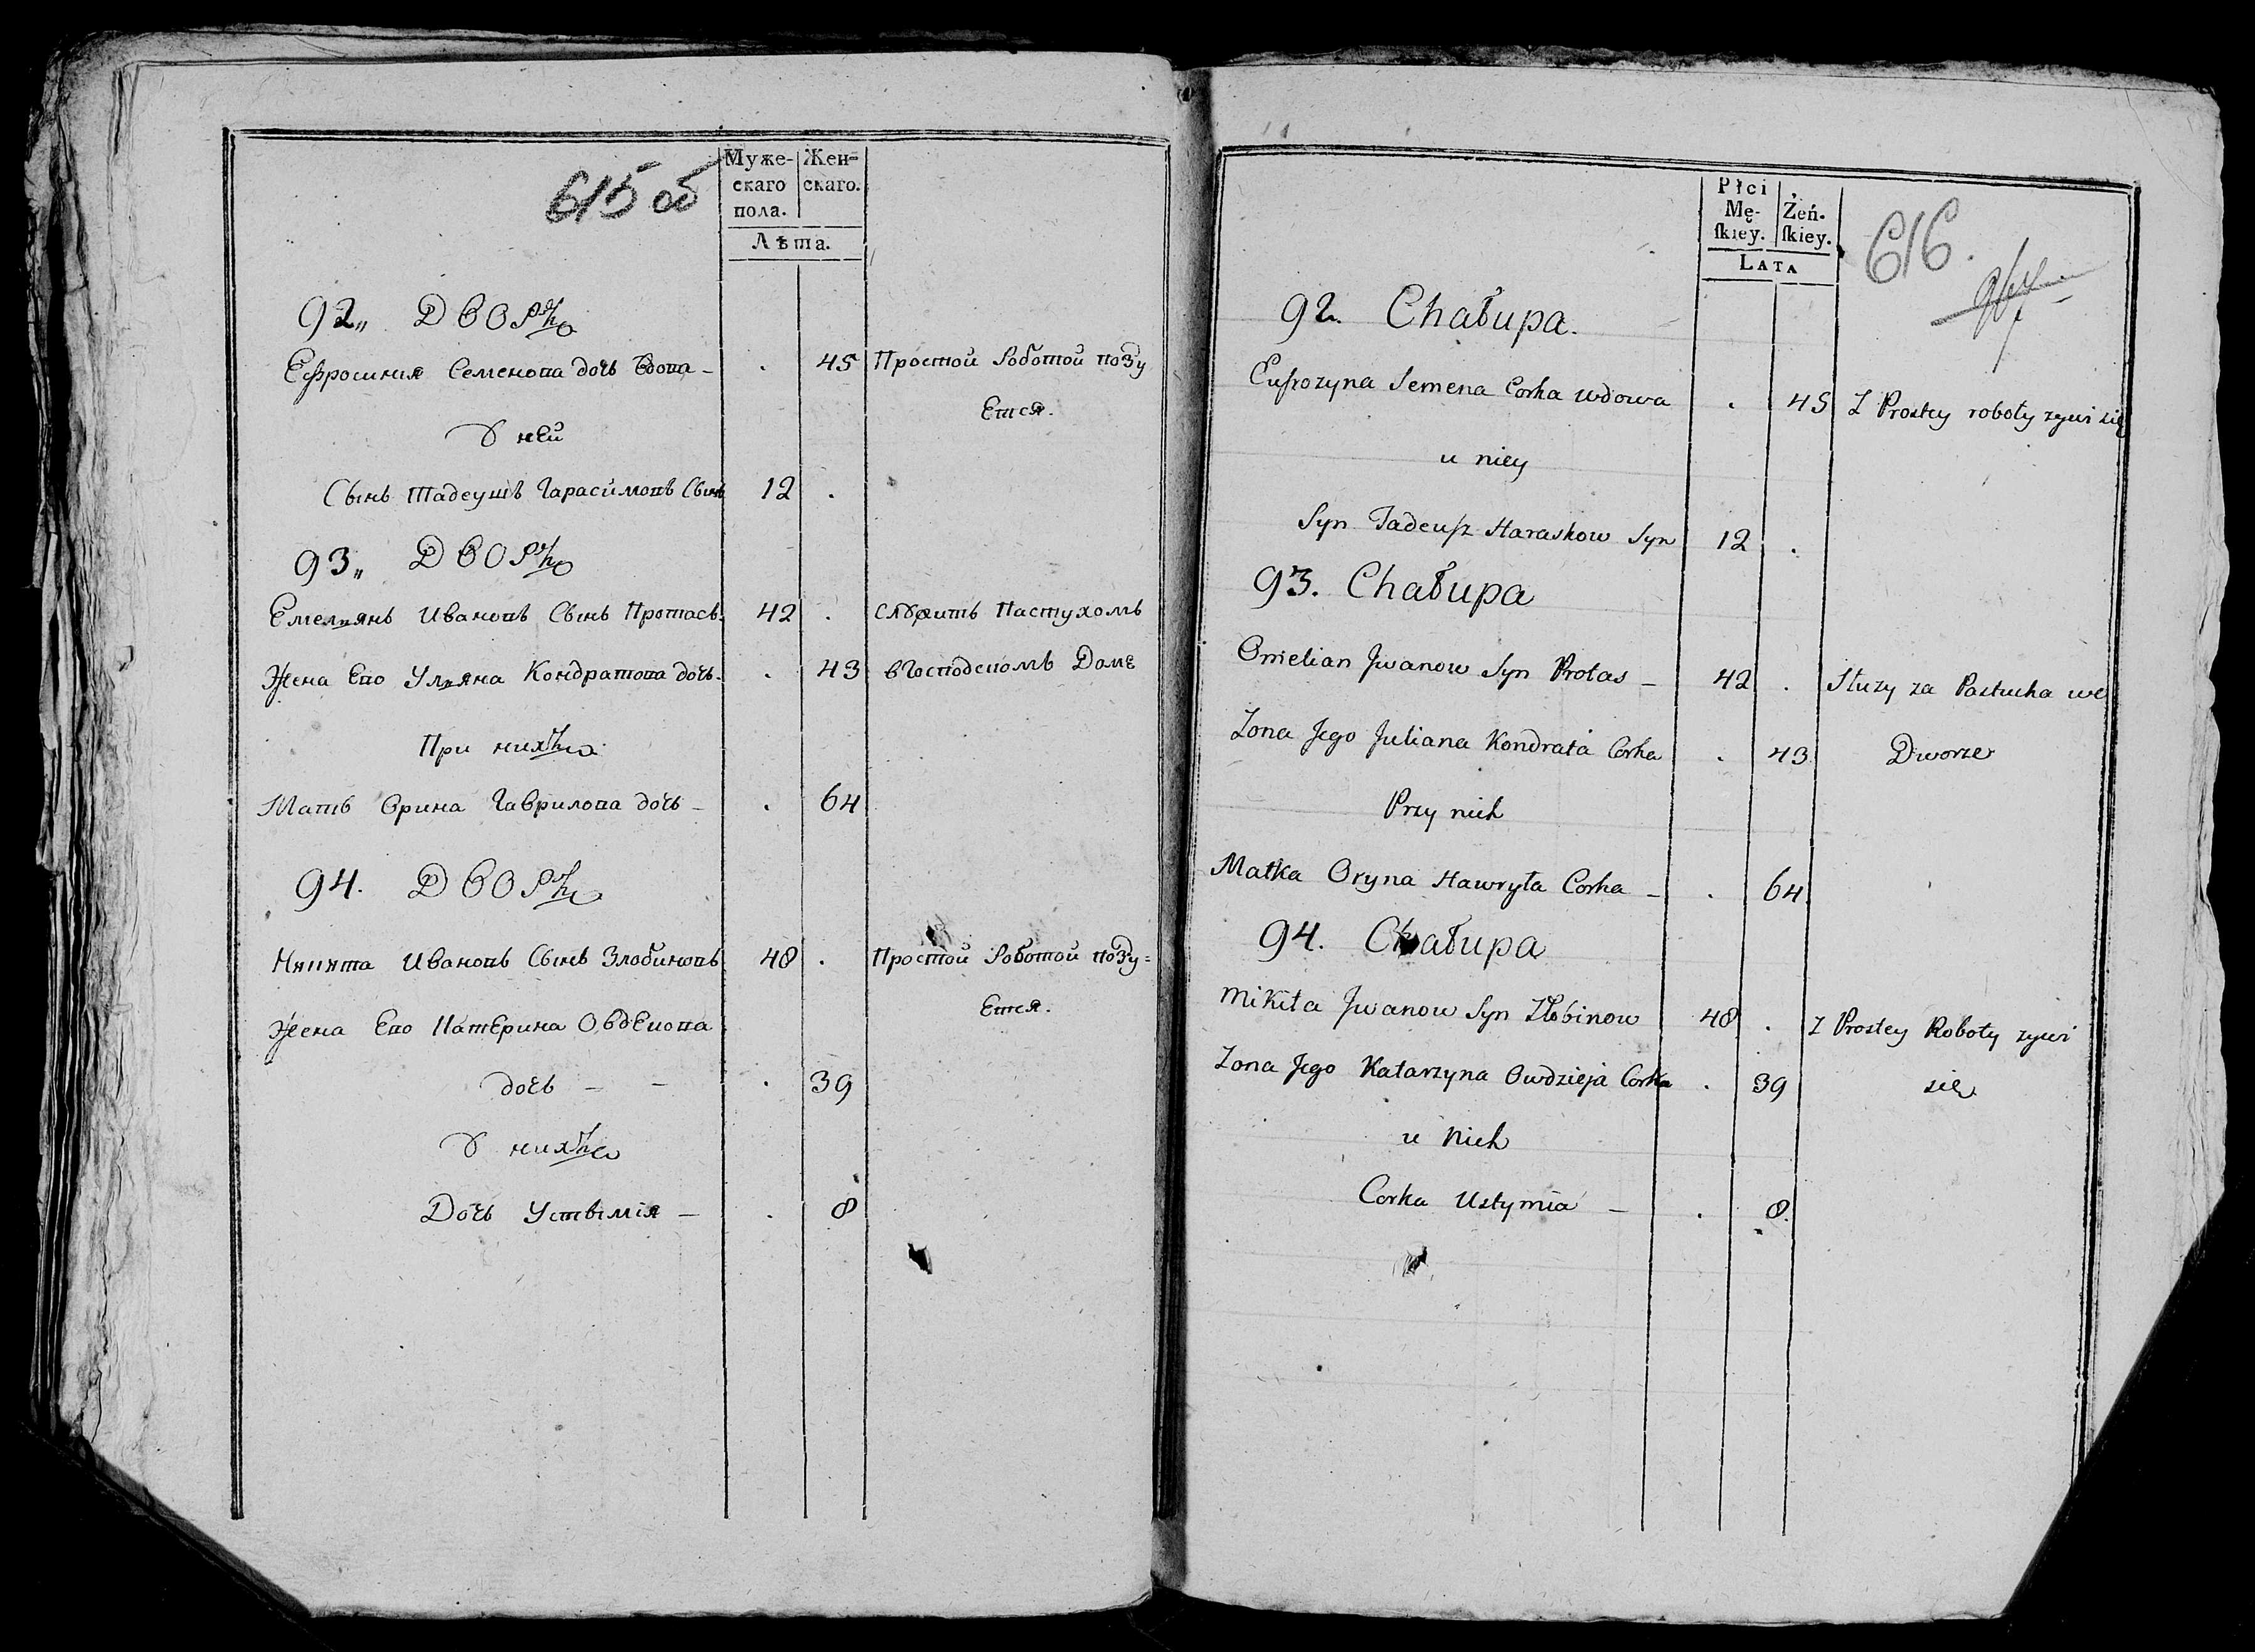 615 об
Муже-
скаго
пола.
Жен-
скаго.
Лѣта.
92„ Дворъ
Ефросиния Семенова дочь вдова - . 45 Простой Роботой позу
Ется.
У ней
Сынъ тадеушъ Гарасимовъ Сынъ 12 .
93„ Дворъ
Емельянъ Ивановъ Сынъ Протасъ. 42 . Служитъ Пастухомъ
Жена Его Ульяна Кондратова дочь. . 43 вГосподскомъ Доме
При нихъ
Мать Орина Гаврилова дочь - . 64
94. Дворъ
Никита Ивановъ Сынъ Злобиновъ 48 . Простой Роботой позу=
Ется.
Жена Его Катерина Овдеюва
дочь - - . 39
У нихъ
Дочь Устимія - . 8
Płci
Mę-
ſkiey.
Żeń.
ſkiey.
LATA
616.
92. Chałupa.
Eufrozyna Semena Corka wdowa . 45 Z Prostey roboty zywi się
u niey
Syn Tadeuſz Haraskow Syn 12 .
93. Chałupa
Omelian Jwanow Syn Protas - 42 . Służy za Pastucha we
Zona Jego Juliana Kondrata Corka . 43 Dworze
Przy nich
Matka Oryna Hawryła Corka - . 64
94. Chałupa
Mikita Jwanow Syn Złobinow 48 . Z Prostey Roboty zywi
Zona Jego Katarzyna Owdzieja Corka . 39 się
u Nich
Corka Ustymia - . 8.